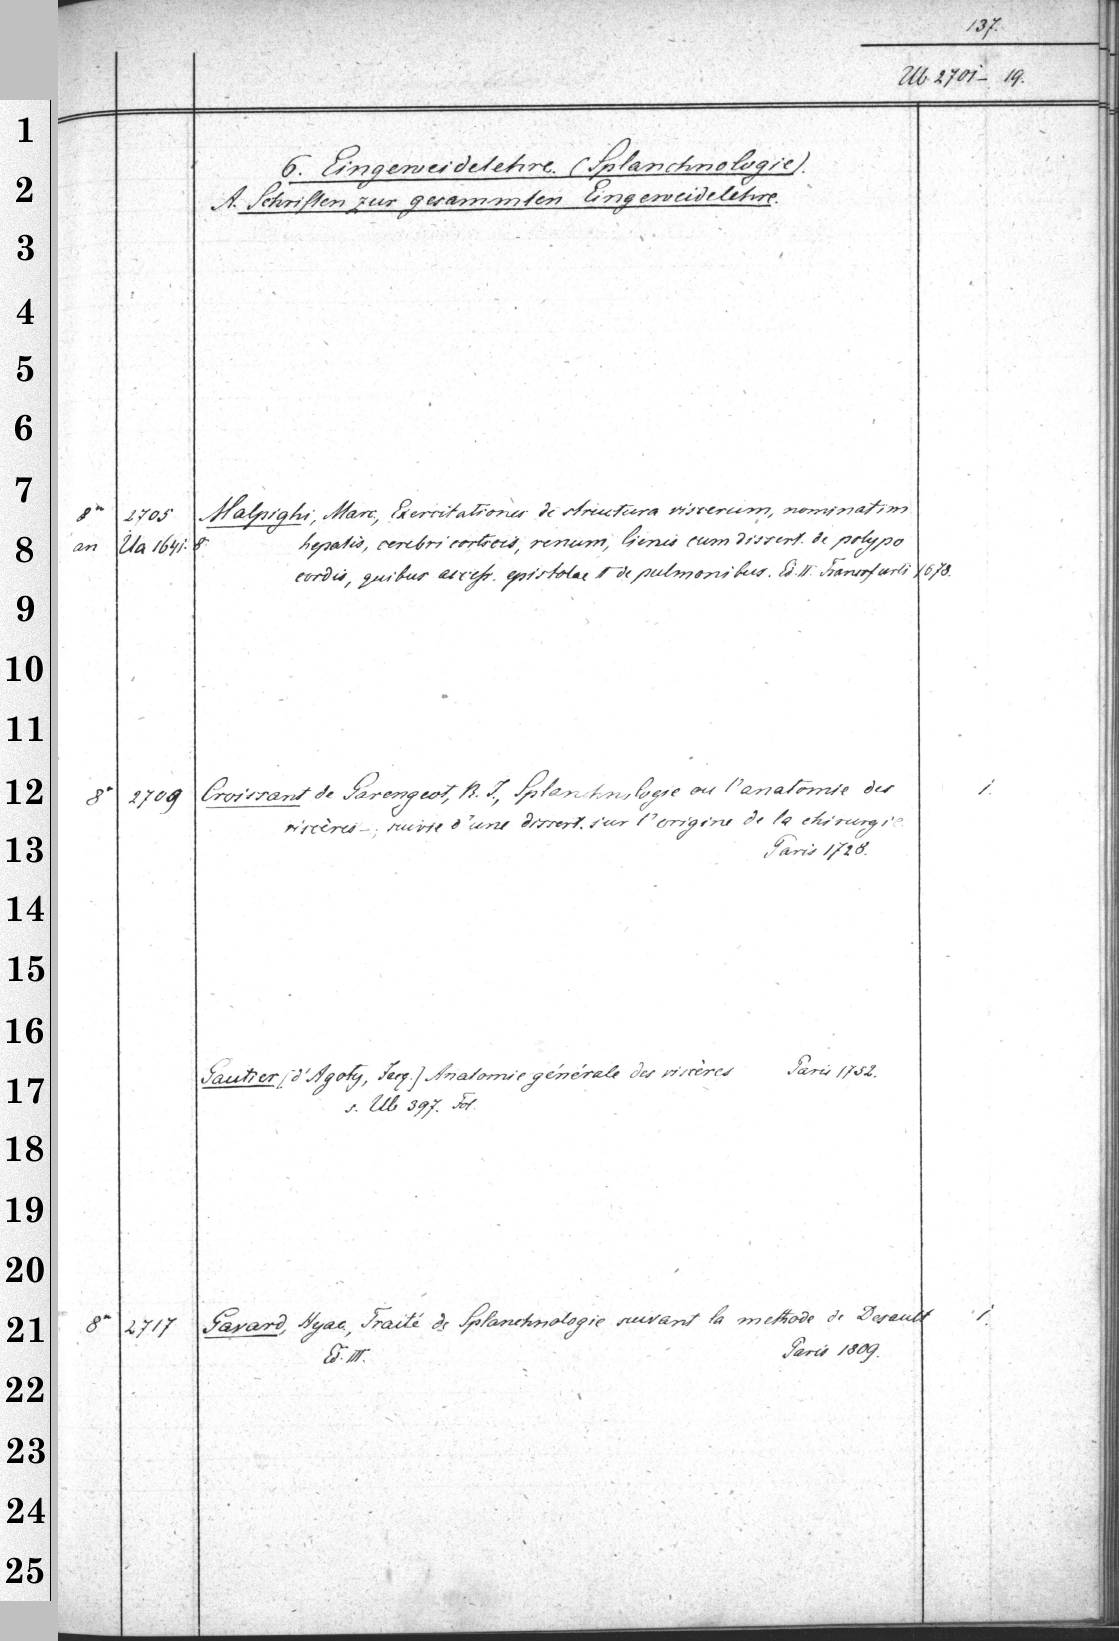 137.
Ub 2701- 19.
6. Eingeweidelehre. (Splanchnologie).
A. Schriften zur gesammten Eingeweidelehre.
8° 2705 Malpighi, Marc, Exercitationes de structura viscerum, nominatim
an Ua 1641. 8. hepatis, cerebri corticis, renum, lienis cum dissert. de polypo
cordis, quibus access. epistolae II de pulmonibus. Ed. II. Francofurti 1678.
8° 2709 Croissant de Garengeot, R. J., Splanchnologie ou l'anatomie des 1.
viscères -; suivie d'une dissert. sur l'origine de la chirurgie
Paris 1728.
Gautier [d'Agoty, Jacq.] Anatomie générale des viscères Paris 1752.
s. Ub 397. Fol.
8° 2717 Gavard, Hyac., Traité de Splanchnologie suivant la methode de Desault 1.
Ed. III. Paris 1809.
1
2
3
4
5
6
7
8
9
10
11
12
13
14
15
16
17
18
19
20
21
22
23
24
25